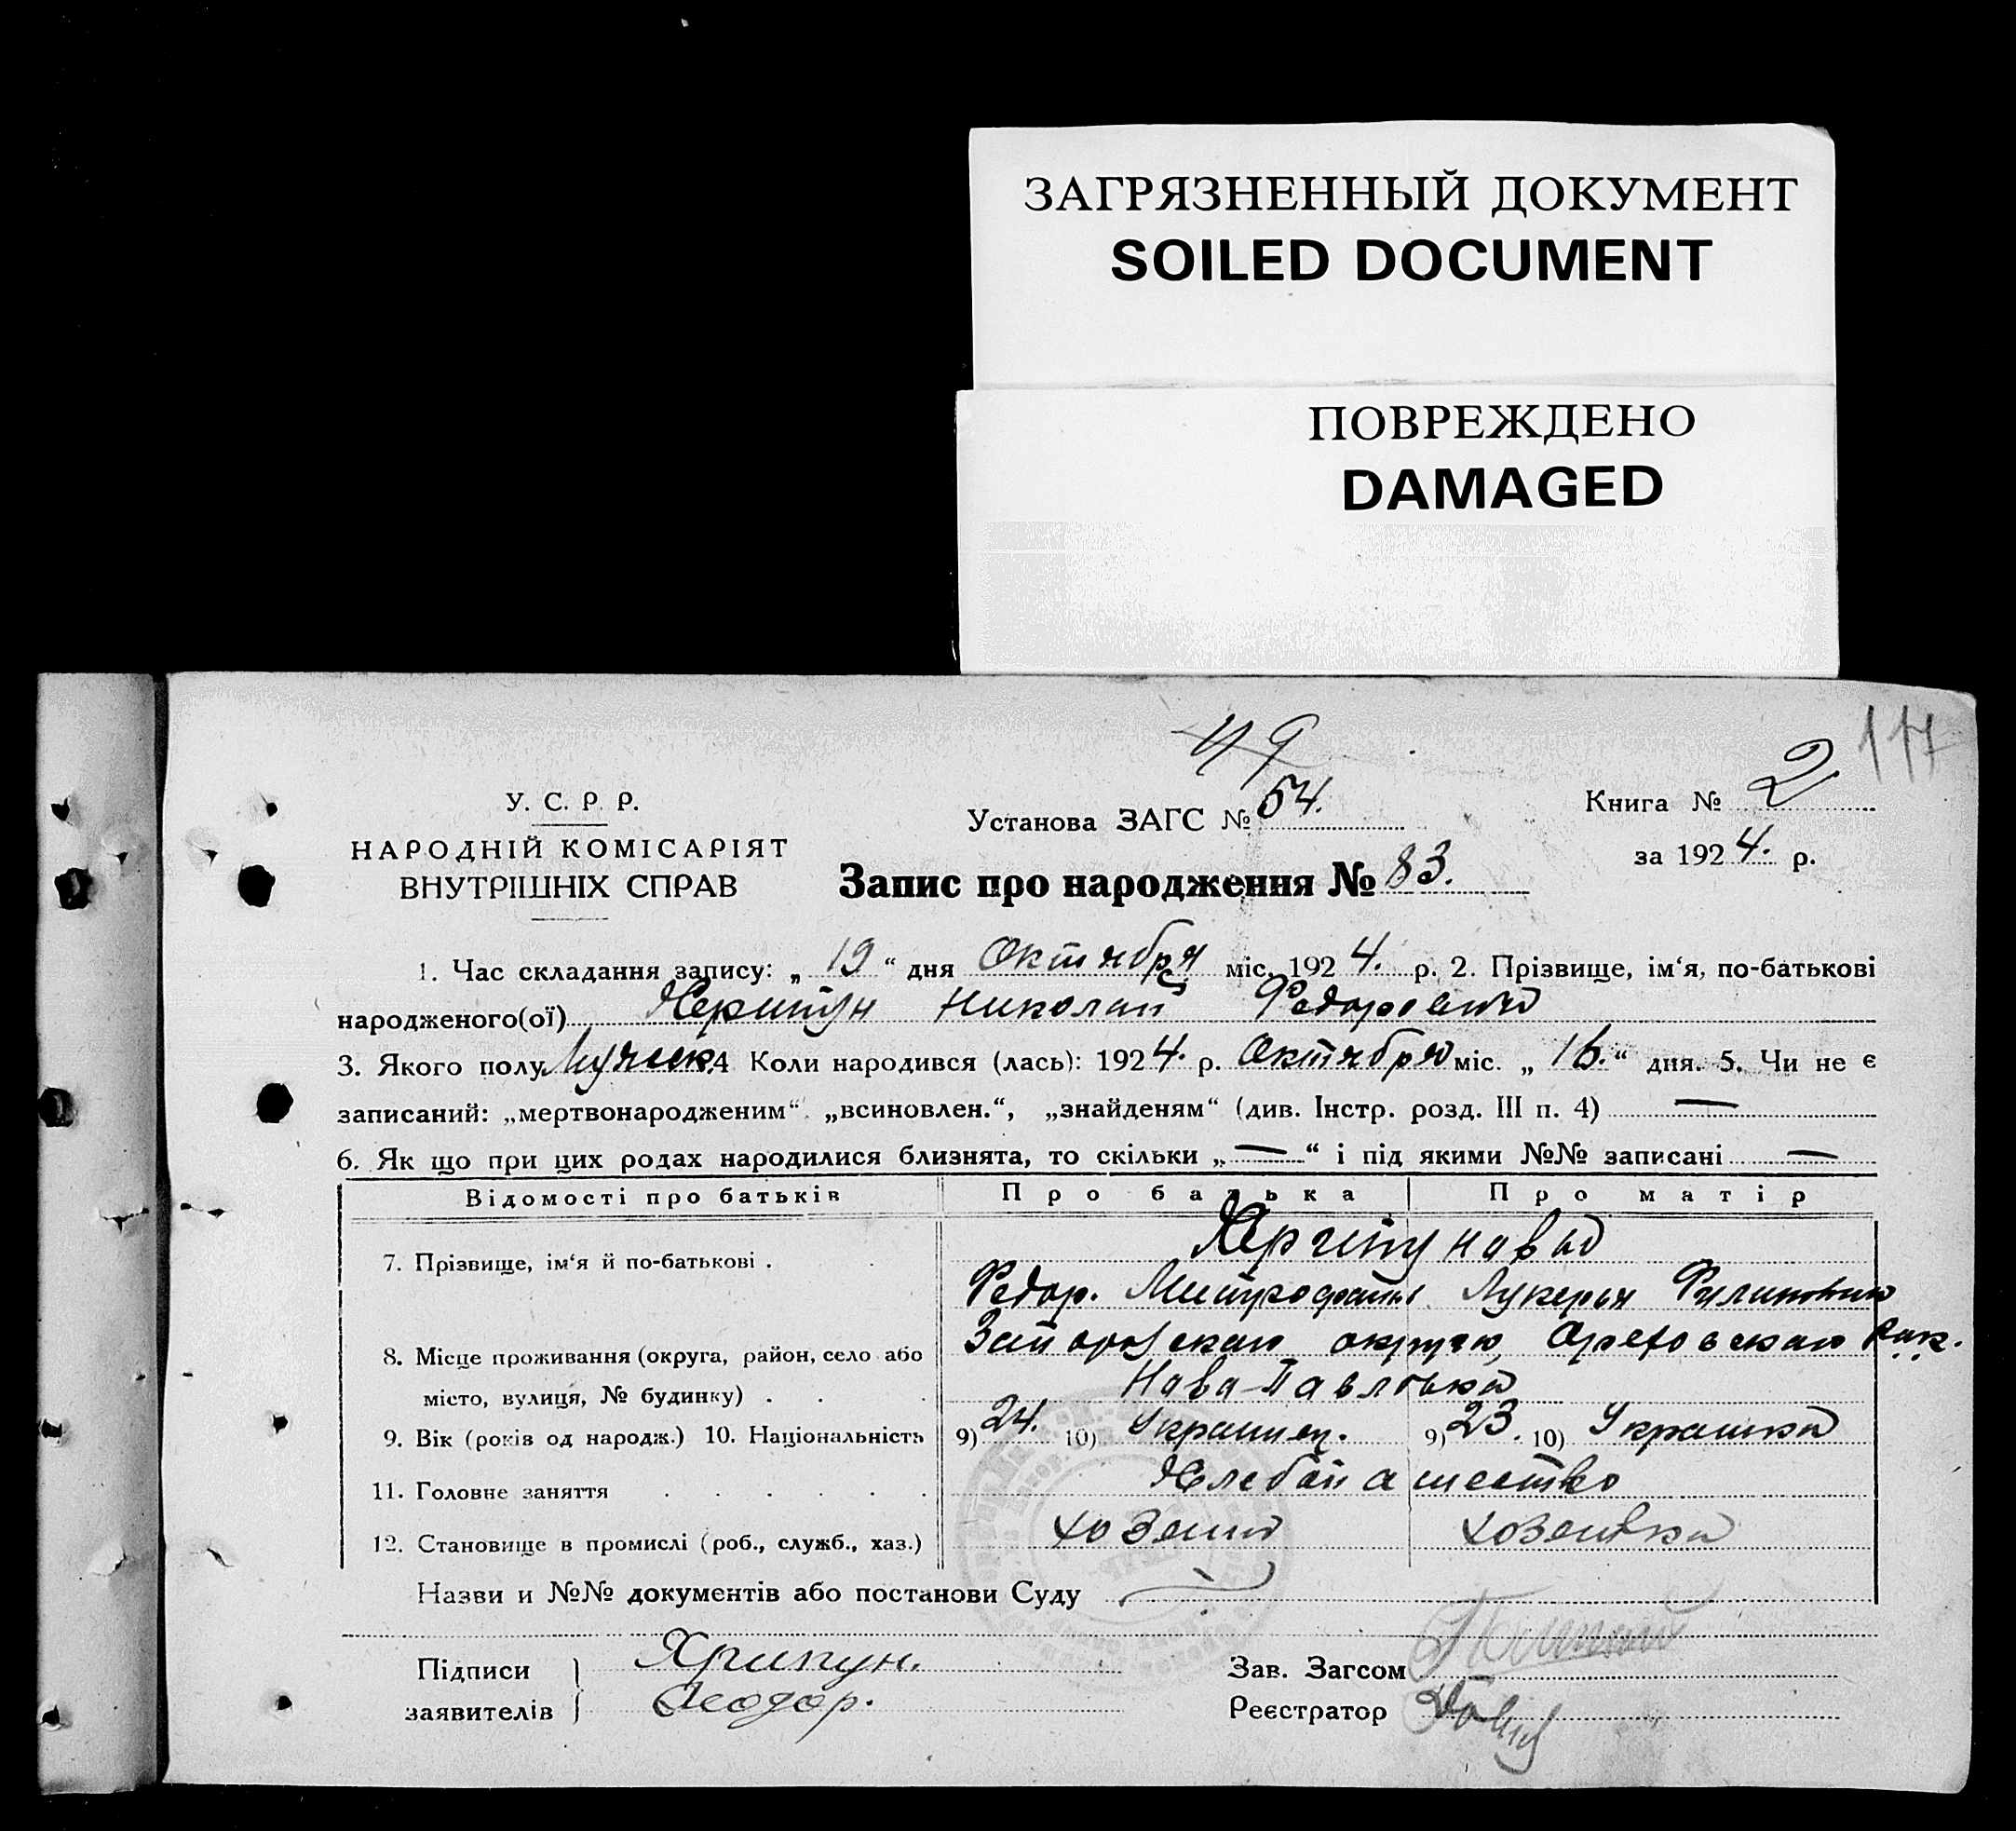 ЗАГРЯЗНЕННЫЙ ДОКУМЕНТ
SOILED DOCUMENT
ПОВРЕЖДЕНО
DAMAGED
49
117
У. С. Р. Р.
Установа ЗАГС № 54.
Книга № 2
НАРОДНІЙ КОМІСАРІЯТ
ВНУТРІШНІХ СПРАВ
за 1924. р.
Запис про народження № 83.
1. Час складання запису: „ 19 “ дня Октября міс. 1924. р. 2. Прізвище, ім‘я, по-батькові
народженого(ої) Николай Федорович
3. Якого полу Мужеск. 4 Коли народився (лась): 1924. р. Октября міс. „ 16. “ дня. 5. Чи не є
записаний: „мертвонародженим“ „всиновлен.“, „знайденям“ (див. Інстр. розд. III п. 4) —
6. Як що при цих родах народилися близнята, то скільки „ — “ і під якими №№ записані —
Відомості про батьків Про батька Про матір
7. Прізвище, ім‘я й по-батькові .
Федор. Лукерья
8. Місце проживання (округа, район, село або
місто, вулиця, № будинку) . . .
Нова-Павловка
9. Вік (років од народж.) 10. Національність 9) 24. 10) Украинец. 9) 23. 10) Украинка
11. Головне заняття . . . . . . Хлебопашество
12. Становище в промислі (роб., служб., хаз.) хозеин хозеика
Назви и №№ документів або постанови Суду
Підписи Хрипун. Зав. Загсом
заявителів Феодор. Реєстратор